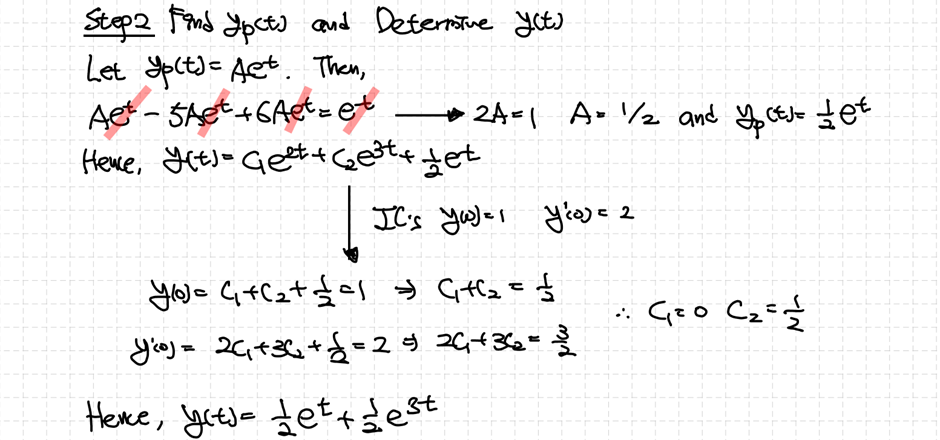 Step2 Find yp(t) and Determine y(t)
Let yp(t)=Ae^t. Then,
Ae^t - 5Ae^t + 6Ae^t = e^t → 2A=1 A=1/2 and yp(t)=1/2 e^t
Hence, y(t)= C1e^2t + C2e^3t + 1/2 e^t
IC's y(0)=1 y'(0)=2
y(0)= C1+C2+1/2=1 ⇒ C1+C2=1/2
y'(0)= 2C1+3C2+1/2=2 ⇒ 2C1+3C2=3/2
∴ C1=0 C2=1/2
Hence, y(t)= 1/2 e^t + 1/2 e^3t